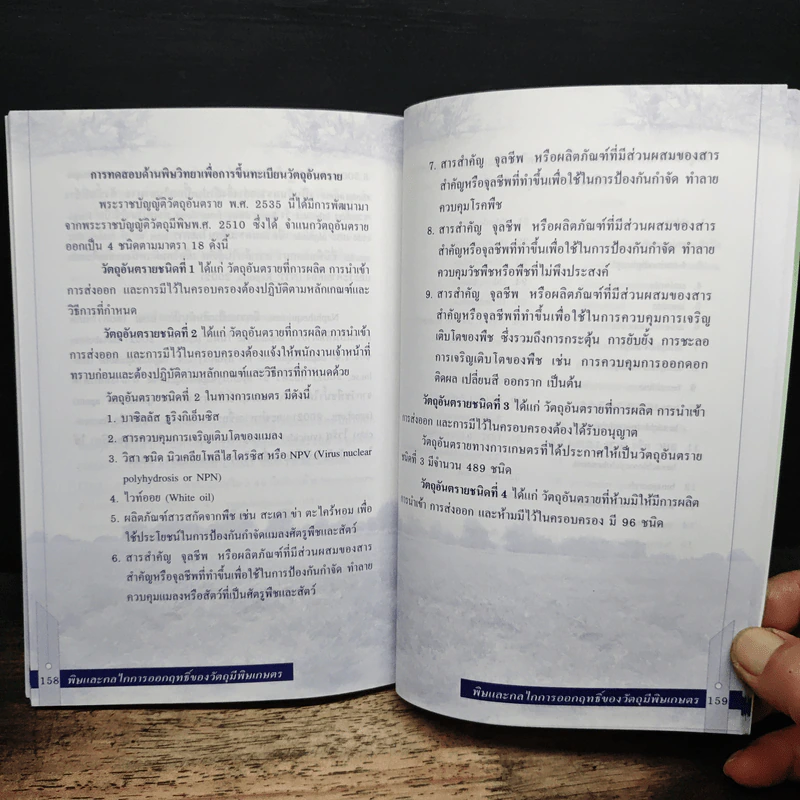 การทดสอบด้านพิษวิทยาเพื่อการขึ้นทะเบียนวัตถุอันตราย
พระราชบัญญัติวัตถุอันตราย พ.ศ. 2535 นี้ได้มีการพัฒนามา
จากพระราชบัญญัติวัตถุมีพิษพ.ศ. 2510 ซึ่งได้ จำแนกวัตถุอันตราย
ออกเป็น 4 ชนิดตามมาตรา 18 ดังนี้
วัตถุอันตรายชนิดที่ 1 ได้แก่ วัตถุอันตรายที่การผลิต การนำเข้า
การส่งออก และการมีไว้ในครอบครองต้องปฏิบัติตามหลักเกณฑ์และ
วิธีการที่กำหนด
วัตถุอันตรายชนิดที่ 2 ได้แก่ วัตถุอันตรายที่การผลิต การนำเข้า
การส่งออก และการมีไว้ในครอบครองต้องแจ้งให้พนักงานเจ้าหน้าที่
ทราบก่อนและต้องปฏิบัติตามหลักเกณฑ์และวิธีการที่กำหนดด้วย
วัตถุอันตรายชนิดที่ 2 ในทางการเกษตร มีดังนี้
1. บาซิลลัส ธูริงกิเอ็นซิส
2. สารควบคุมการเจริญเติบโตของแมลง
3. วิสา ชนิด นิวเคลียโพลีไฮโดรซิส หรือ NPV (Virus nuclear
polyhydrosis or NPN)
4. ไวท์ออย (White oil)
5. ผลิตภัณฑ์สารสกัดจากพืช เช่น สะเดา ข่า ตะไคร้หอม เพื่อ
ใช้ประโยชน์ในการป้องกันกำจัดแมลงศัตรูพืชและสัตว์
6. สารสำคัญ จุลชีพ หรือผลิตภัณฑ์ที่มีส่วนผสมของสาร
สำคัญหรือจุลชีพที่ทำขึ้นเพื่อใช้ในการป้องกันกำจัด ทำลาย
ควบคุมแมลงหรือสัตว์ที่เป็นศัตรูพืชและสัตว์
158 พิษและกลไกการออกฤทธิ์ของวัตถุมีพิษเกษตร
7. สารสำคัญ จุลชีพ หรือผลิตภัณฑ์ที่มีส่วนผสมของสาร
สำคัญหรือจุลชีพที่ทำขึ้นเพื่อใช้ในการป้องกันกำจัด ทำลาย
ควบคุมโรคพืช
8. สารสำคัญ จุลชีพ หรือผลิตภัณฑ์ที่มีส่วนผสมของสาร
สำคัญหรือจุลชีพที่ทำขึ้นเพื่อใช้ในการป้องกันกำจัด ทำลาย
ควบคุมวัชพืชหรือพืชที่ไม่พึงประสงค์
9. สารสำคัญ จุลชีพ หรือผลิตภัณฑ์ที่มีส่วนผสมของสาร
สำคัญหรือจุลชีพที่ทำขึ้นเพื่อใช้ในการควบคุมการเจริญ
เติบโตของพืช ซึ่งรวมถึงการกระตุ้น การยับยั้ง การชะลอ
การเจริญเติบโตของพืช เช่น การควบคุมการออกดอก
ติดผล เปลี่ยนสี ออกราก เป็นต้น
วัตถุอันตรายชนิดที่ 3 ได้แก่ วัตถุอันตรายที่การผลิต การนำเข้า
การส่งออก และการมีไว้ในครอบครองต้องได้รับอนุญาต
วัตถุอันตรายทางการเกษตรที่ได้ประกาศให้เป็นวัตถุอันตราย
ชนิดที่ 3 มีจำนวน 489 ชนิด
วัตถุอันตรายชนิดที่ 4 ได้แก่ วัตถุอันตรายที่ห้ามมิให้มีการผลิต
การนำเข้า การส่งออก และห้ามมีไว้ในครอบครอง มี 96 ชนิด
พิษและกลไกการออกฤทธิ์ของวัตถุมีพิษเกษตร 159